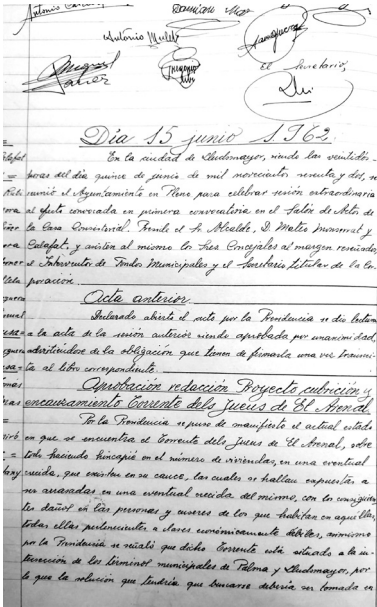 Antonio
Damian
Antonio Mulet
El Secretario,
Miguel
Gregorio
Día 15 junio 1.962.
En la ciudad de Lluchmayor, siendo las veintidós
horas del día quince de junio de mil novecientos sesenta y dos, se
reunió el Ayuntamiento en Pleno para celebrar sesión extraordinaria
al efecto convocada en primera convocatoria en el Salón de Actos de
la Casa Consistorial. Preside el Sr. Alcalde, D. Mateo Monserrat y
Calafat, y asisten al mismo los Sres Concejales al margen reseñados,
el Interventor de Fondos Municipales y el Secretario titular de la Cor-
poración.
Acta anterior.
Declarado abierto el acto por la Presidencia se dio lectura
a la acta de la sesión anterior siendo aprobada por unanimidad,
advirtiéndose de la obligación que tienen de firmarla una vez transcri-
ta al libro correspondiente.
Aprobación redacción Proyecto cubrición y
encauzamiento Torrente dels Jueus de El Arenal.
Por la Presidencia se puso de manifiesto el actual estado
en que se encuentra el Torrente dels Jueus de El Arenal, sobre
todo haciendo hincapié en el número de viviendas, en una eventual
crecida, que existen en su cauce, las cuales se hallan expuestas a
ser arrasadas en una eventual crecida del mismo, con los consiguien-
tes daños en las personas y enseres de los que habitan en aquellas,
todas ellas pertenecientes a clases económicamente débiles, asimismo
por la Presidencia se señaló que dicho Torrente está situado a la in-
tersección de los términos municipales de Palma y Lluchmayor, por
lo que la solución que tendría que buscarse debería ser tomada en